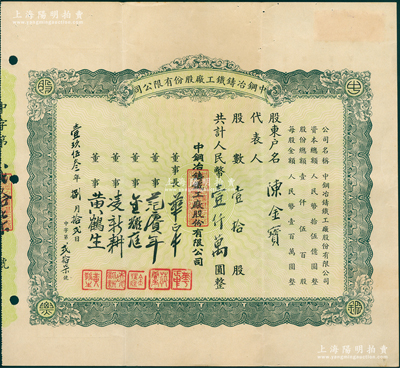 上海阳明拍卖
中鋼冶鑄鐵工廠股份有限公司
公司名稱 中鋼冶鑄鐵工廠股份有限公司
資本總額 人民幣拾伍億圓整
股份總額 壹仟伍百股
每股金額 人民幣壹百萬圓整
股東戶名 陳金寶
代表人
股數 壹拾股
共計人民幣壹仟萬圓整
中鋼冶鑄鐵工廠股份有限公司
董事長
董事
董事
董事
董事 黃鶴生
壹玖伍叁年 月拾 日
中字第 號
中字第 號
上海阳明拍卖